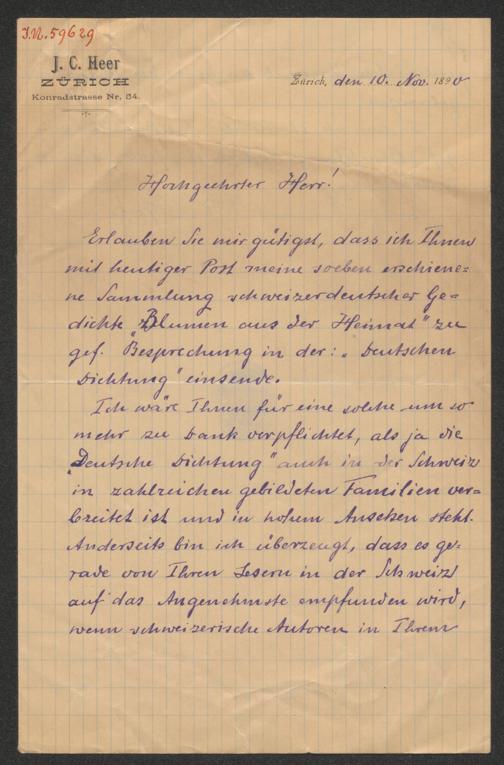 I.N. 59629
J. C. Heer
ZÜRICH
Konradstrasse Nr. 54.
Zürich, den 10. Nov. 1890
Hochgeehrter Herr!
Erlauben Sie mir gütigst, dass ich Ihnen
mit heutiger Post meine soeben erschiene=
ne Sammlung schweizerdeutscher Ge=
dichte „Blumen aus der Heimat" zu
gef. Besprechung in der: „Deutschen
Dichtung" einsende.
Ich wäre Ihnen für eine solche um so
mehr zu Dank verpflichtet, als ja die
„Deutsche Dichtung" auch in der Schweiz
in zahlreichen gebildeten Familien ver=
breitet ist und in hohem Ansehen steht.
Anderseits bin ich überzeugt, dass es ge=
rade von Ihren Lesern in der Schweiz
auf das Angenehmste empfunden wird,
wenn schweizerische Autoren in Ihrem